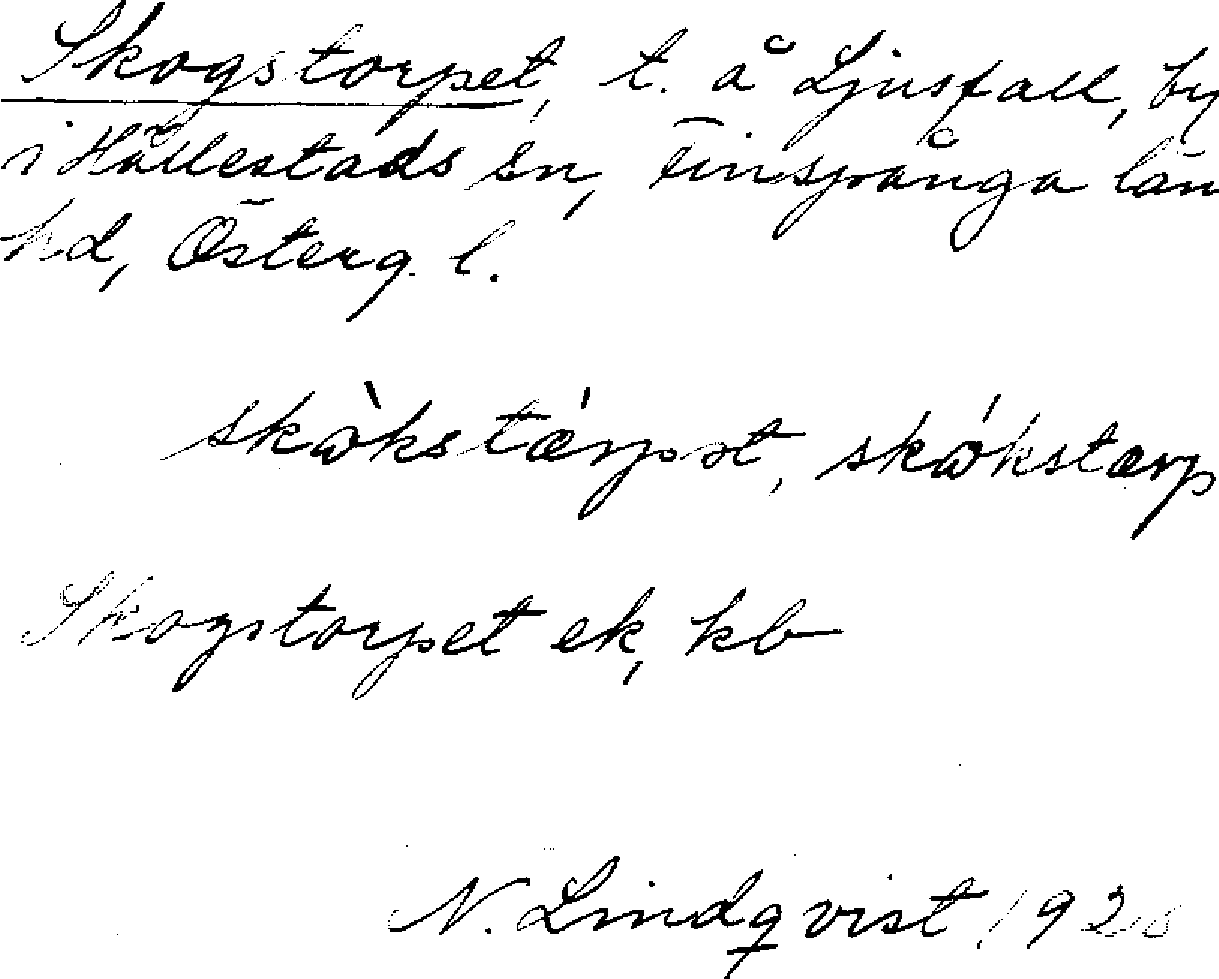 Skogstorpet, t. å Ljusfall, by
i Hällestads sn, Finspånga län
hd, Österg. l.
skòkstǽrpət, skókstærp
Skogstorpet ek, kb
N. Lindqvist